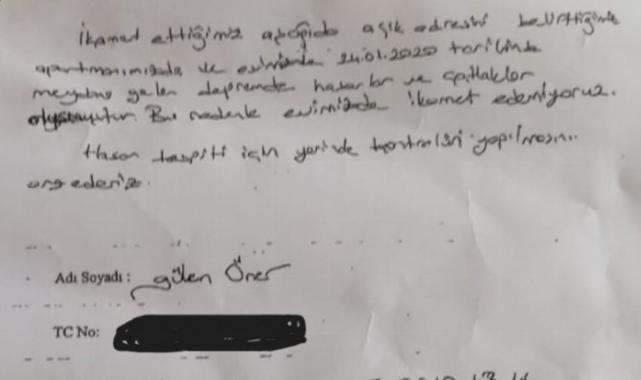 İkamet ettiğimiz aşağıda açık adresini belirttiğimiz
apartmanımızda ve evimizde 24.01.2020 tarihinde
meydana gelen depremde hasarlar ve çatlaklar
oluşmuştur. Bu nedenle evimizde ikamet edemiyoruz.
Hasar tespiti için yerinde kontrolün yapılmasını
arz ederiz.
Adı Soyadı : gülen Öner
TC No: